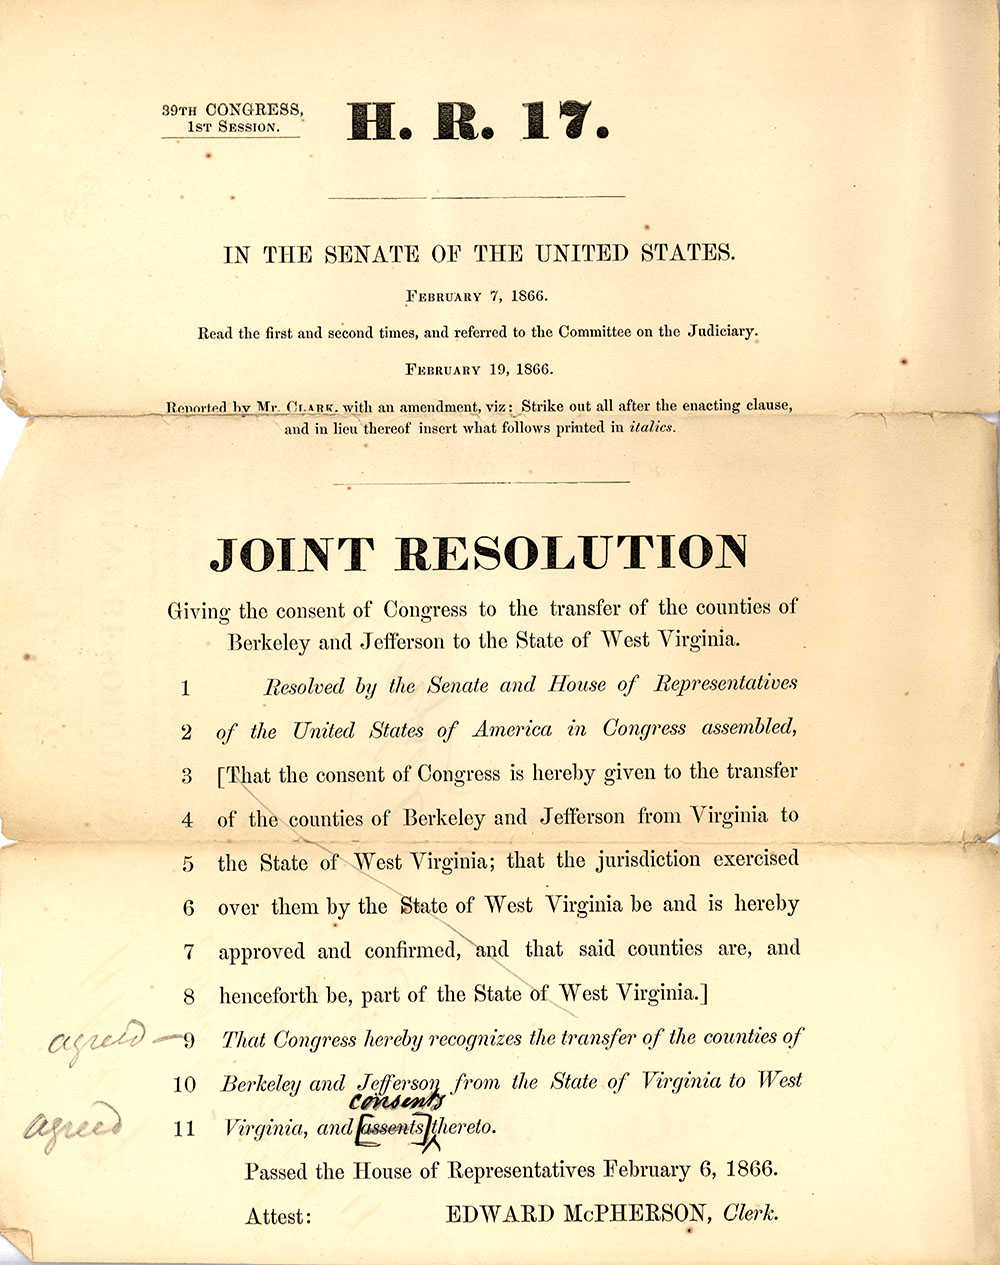 39TH CONGRESS,
1ST SESSION.
H. R. 17.
IN THE SENATE OF THE UNITED STATES.
FEBRUARY 7, 1866.
Read the first and second times, and referred to the Committee on the Judiciary.
FEBRUARY 19, 1866.
Reported by Mr. CLARK, with an amendment, viz: Strike out all after the enacting clause,
and in lieu thereof insert what follows printed in italics.
JOINT RESOLUTION
Giving the consent of Congress to the transfer of the counties of
Berkeley and Jefferson to the State of West Virginia.
1 Resolved by the Senate and House of Representatives
2 of the United States of America in Congress assembled,
3 [That the consent of Congress is hereby given to the transfer
4 of the counties of Berkeley and Jefferson from Virginia to
5 the State of West Virginia; that the jurisdiction exercised
6 over them by the State of West Virginia be and is hereby
7 approved and confirmed, and that said counties are, and
8 henceforth be, part of the State of West Virginia.]
agreed — 9 That Congress hereby recognizes the transfer of the counties of
10 Berkeley and Jefferson from the State of Virginia to West
consents
agreed 11 Virginia, and [assents] thereto.
Passed the House of Representatives February 6, 1866.
Attest: EDWARD McPHERSON, Clerk.